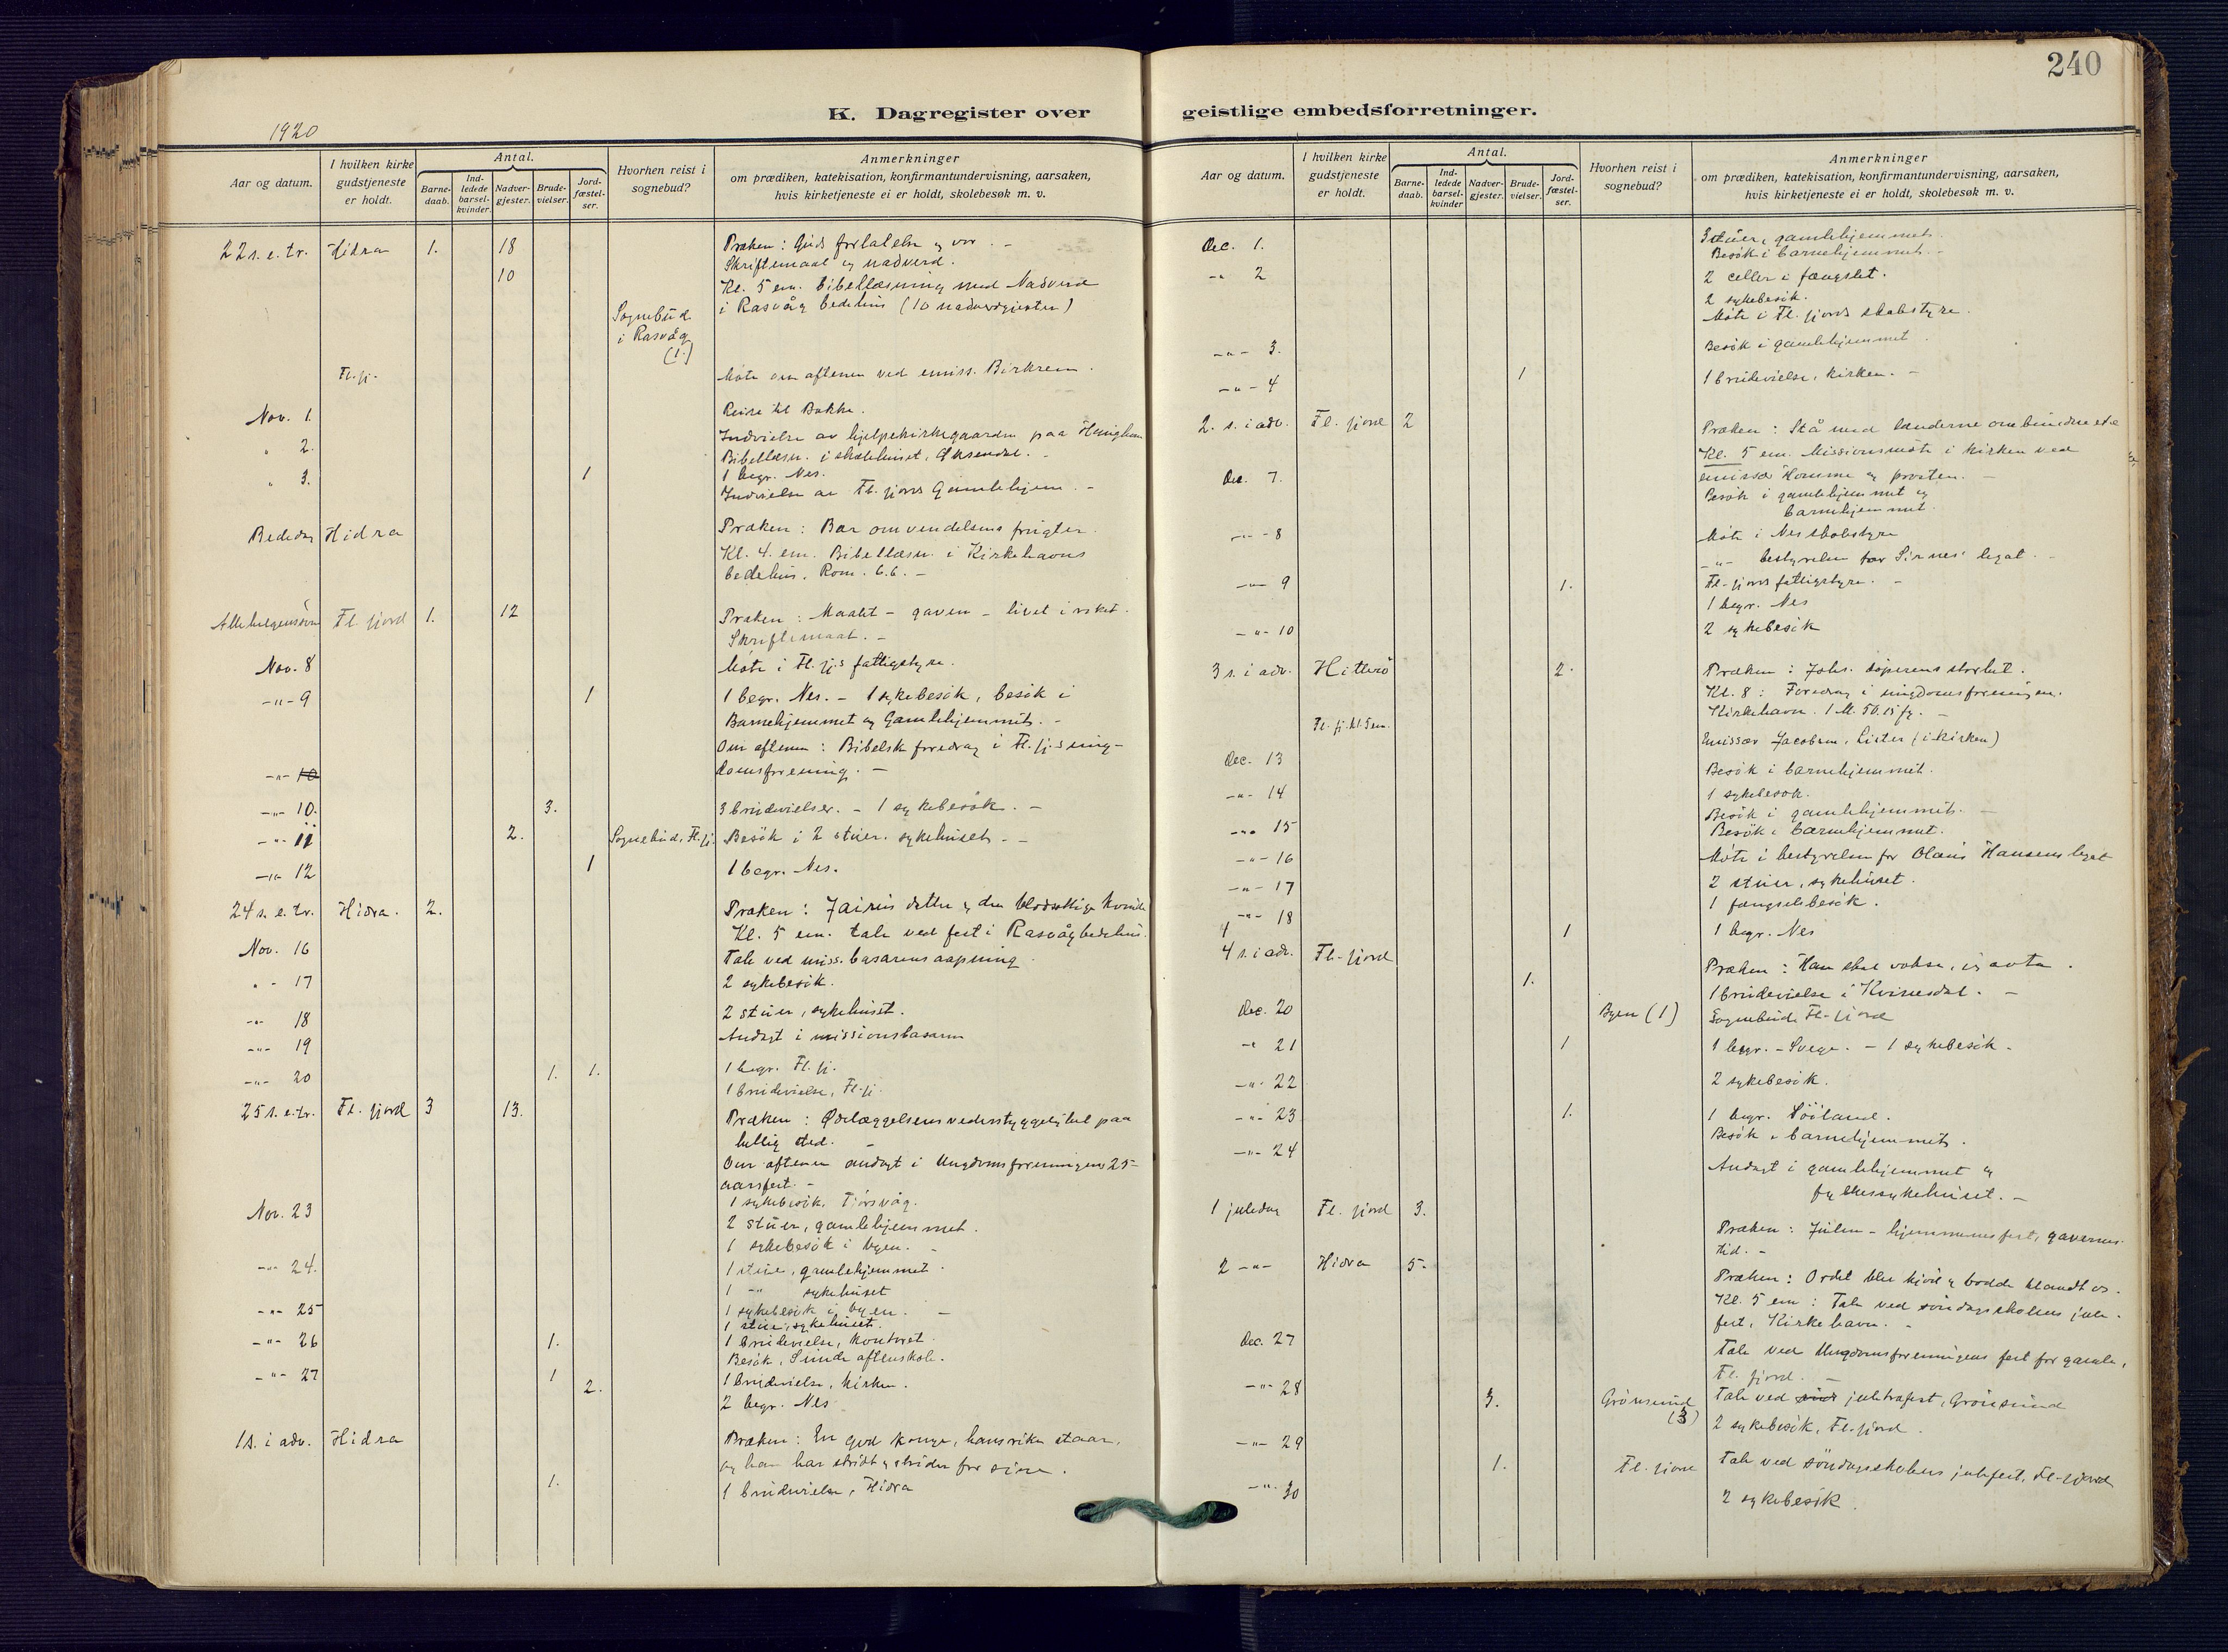 240
K. Dagregister over geistlige embedsforretninger.
1920
Aar og datum.
I hvilken kirke gudstjeneste er holdt.
Antal.
Barnedaab.
Indledede barselkvinder.
Nadvergjester.
Brudevielser.
Jordfæstelser.
Hvorhen reist i sognebud?
Anmerkninger
om prædiken, katekisation, konfirmantundervisning, aarsaken,
hvis kirketjeneste ei er holdt, skolebesøk m. v.
22 s. e. tr. Hidra 1. 18 Præken: Guds forlatelse og vor. -
Skriftemaal og nadverd.
10 Kl. 5 em. bibellæsning med Nadverd
i Rasvåg bedehus (10 nadvergjester)
Sognebud
i Rasvåg
(1.)
Fl. fj. Møte om aftenen ved emiss. Birkrem.
Nov. 1. Reise til Bakke.
" 2. Indvielse av hjelpekirkegaarden paa
Bibellæsn. i skolehuset,
" 3. 1 1 begr. Nes.
Indvielse av Fl. fjords Gamlehjem. -
Bededag Hidra Præken: Bær omvendelsens frugter.
Kl. 4. em. Bibellæsn. i Kirkehavns
bedehus. Rom. 6.6. -
Allehelgensøn Fl. fjord 1. 12 Præken: Maalet - gaven - livet i
Skriftemaal. -
Nov. 8 Møte i Fl. fj.s fattigstyre.
-"- 9 1 1 begr. Nes. - 1 sykebesök, besök i
Barnehjemmet og Gamlehjemmet. -
Om aftenen: Bibelsk foredrag i Fl. fj.s ung-
domsforening. -
-"- 10
-"- 10. 3. 3 brudevielser. - 1 sykebesök. -
-"- 11 2. Sognebud, Fl. fj. Besök i 2 stuer, sykehuset. -
-"- 12 1 1 begr. Nes.
24 s. e. tr. Hidra. 2. Præken: Jairus datter og den blodsottige kvinde
Kl. 5 em. tale ved fest i Rasvåg bedehus.
Nov. 16 Tale ved miss. basarens aapning
" - 17 2 sykebesök.
-"- 18 2 stuer, sykehuset.
-"- 19 Andagt i missionsbasaren
-"- 20 1. 1. 1 begr. Fl. fj.
1 brudevielse, Fl. fj.
25 s. e. tr. Fl. fjord 3 13. Præken: Ødelæggelsens vederstyggelighet paa
hellig sted. -
Om aftenen andagt i Ungdomsforeningens 25-
aarsfest. -
Nov. 23 1 sykebesök, Tjörsvåg.
2 stuer, gamlehjemmet.
1 sykebesök i byen. -
-"- 24. 1 stue, gamlehjemmet.
1 -"- sykehuset
-"- 25 1 sykebesök i byen. -
1 stue, sykehuset.
-"- 26 1. 1 brudevielse, kontoret.
Besök, Sunde aftenskole.
-"- 27 1 1 brudevielse, kirken.
2. 2 begr. Nes
1 s. i adv. Hidra Præken: En god konge, hans rike staar,
og han har stridt og strider for sine.
1. 1 brudevielse, Hidra
Aar og datum.
I hvilken kirke gudstjeneste er holdt.
Antal.
Barnedaab.
Indledede barselkvinder
Nadvergjester.
Brudevielser.
Jordfæstelser.
Hvorhen reist i sognebud?
Anmerkninger
om prædiken, katekisation, konfirmantundervisning, aarsaken,
hvis kirketjeneste ei er holdt, skolebesøk m. v.
Dec. 1. 3 stuer, gamlehjemmet.
Besök i barnehjemmet. -
-"- 2 2 celler i fængslet.
2 sykebesök.
Møte i Fl. fjords skolestyre.
-"- 3. Besök i gamlehjemmet.
-"- 4 1 1 brudevielse, kirken. -
2. s. i adv. Fl. fjord 2 Præken: Stå med lænderne ombundne
Kl. 5 em. Missionsmøte i kirken ved
emissær Homme og provsten. -
Dec. 7. Besök i gamlehjemmet og
barnehjemmet.
-"- 8 Møte i Nes skolestyre
-"- bestyrelsen for Sirnes' legat. -
-"- 9 1. Fl. fjords fattigstyre. -
1 begr. Nes
-"- 10 2 sykebesök
3 s. i adv. Hitterö 2. Præken: Johs. döperens storhet.
Kl. 8: Foredrag i ungdomsforeningen.
Kirkehavn.
Fl. fj. kl. 5 em. Emissær Jacobsen, Lister (i kirken)
Dec. 13 Besök i barnehjemmet.
-"- 14 1 sykebesök.
Besök i gamlehjemmet. -
-"- 15 Besök i barnehjemmet.
-"- 16 Møte i bestyrelsen for Olaus Hansens legat
-"- 17 2 stuer, sykehuset.
-"- 18 1 fængselsbesök.
1 1 begr. Nes
4 s. i adv. Fl. fjord Præken: Han skal vokse, jeg avta.
1. 1 brudevielse i Kvinesdal. -
Dec. 20 Byen (1) Sognebud Fl. fjord
-"- 21 1 1 begr. - Svege. - 1 sykebesök.
-"- 22 2 sykebesök.
-"- 23 1. 1 begr. Lööland.
Besök i barnehjemmet.
-"- 24 Andagt i gamlehjemmet og
fylkessykehuset. -
1 juledag Fl. fjord 3. Præken: Julen - hjemmenes fest, gavernes
tid. -
2 -"- Hidra 5. Præken: Ordet blev kjöd og bodde blandt os.
Kl. 5 em: Tale ved söndagsskolens jule-
fest, Kirkehavn. -
Dec. 27 Tale ved Ungdomsforeningens fest for gamle,
Fl. fjord. -
-"- 28 3. Grönsund (3) Tale ved juletræfest, Grönsund
2 sykebesök, Fl. fjord.
-"- 29 1. Fl. fjord Tale ved söndagsskolens julefest, Fl. fjord
-"- 30 2 sykebesök.